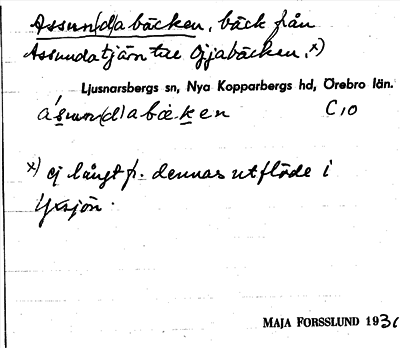 Assun(d)abäcken, bäck från
Assundatjärn till Ojjabäcken.x)
Ljusnarsbergs sn, Nya Kopparbergs hd, Örebro län.
C10
x) ej långt fr. dennas utflöde i
Yxsjön.
MAJA FORSSLUND 193